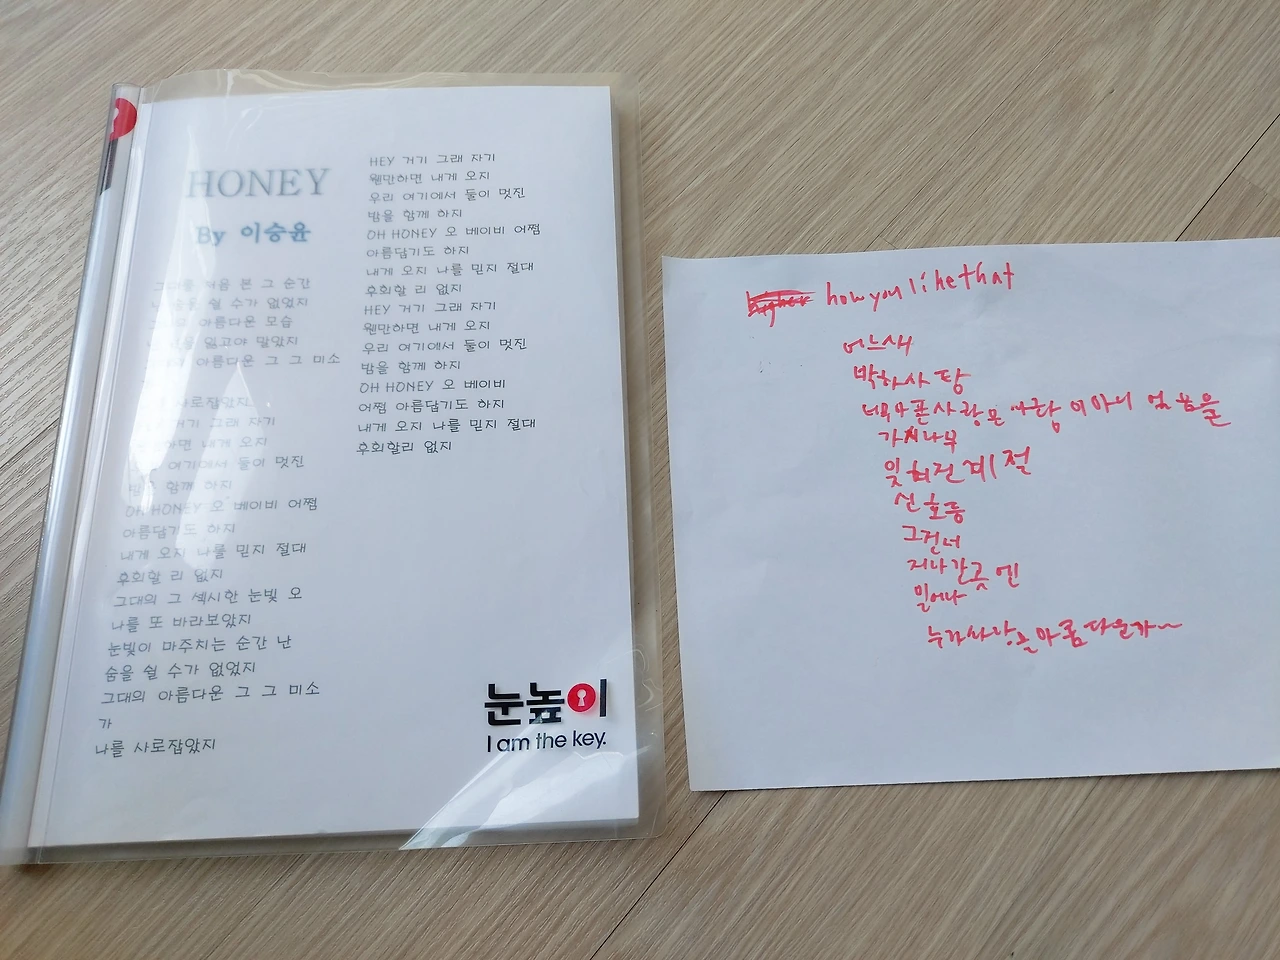 HONEY
By 이승윤
그대를 처음 본 그 순간
난 숨을 쉴 수가 없었지
아름다운 모습
잃고야 말았지
아름다운 그 그 미소
사로잡았지
거기 그래 자기
내게 오지
여기에서 둘이 멋진
밤을 함께 하지
OH HONEY 오 베이비 어쩜
아름답기도 하지
내게 오지 나를 믿지 절대
후회할 리 없지
그대의 그 섹시한 눈빛 오
나를 또 바라보았지
눈빛이 마주치는 순간 난
숨을 쉴 수가 없었지
그대의 아름다운 그 그 미소
가
나를 사로잡았지
HEY 거기 그래 자기
웬만하면 내게 오지
우리 여기에서 둘이 멋진
밤을 함께 하지
OH HONEY 오 베이비 어쩜
아름답기도 하지
내게 오지 나를 믿지 절대
후회할 리 없지
HEY 거기 그래 자기
웬만하면 내게 오지
우리 여기에서 둘이 멋진
밤을 함께 하지
OH HONEY 오 베이비
어쩜 아름답기도 하지
내게 오지 나를 믿지 절대
후회할리 없지
눈높이
I am the key.
how you like that
어느새
박하사탕
너무아픈사랑은 사랑이아니었음을
가시나무
잊혀진계절
신호등
그건너
지나간곳엔
일어나
누가사랑을아름다운가~